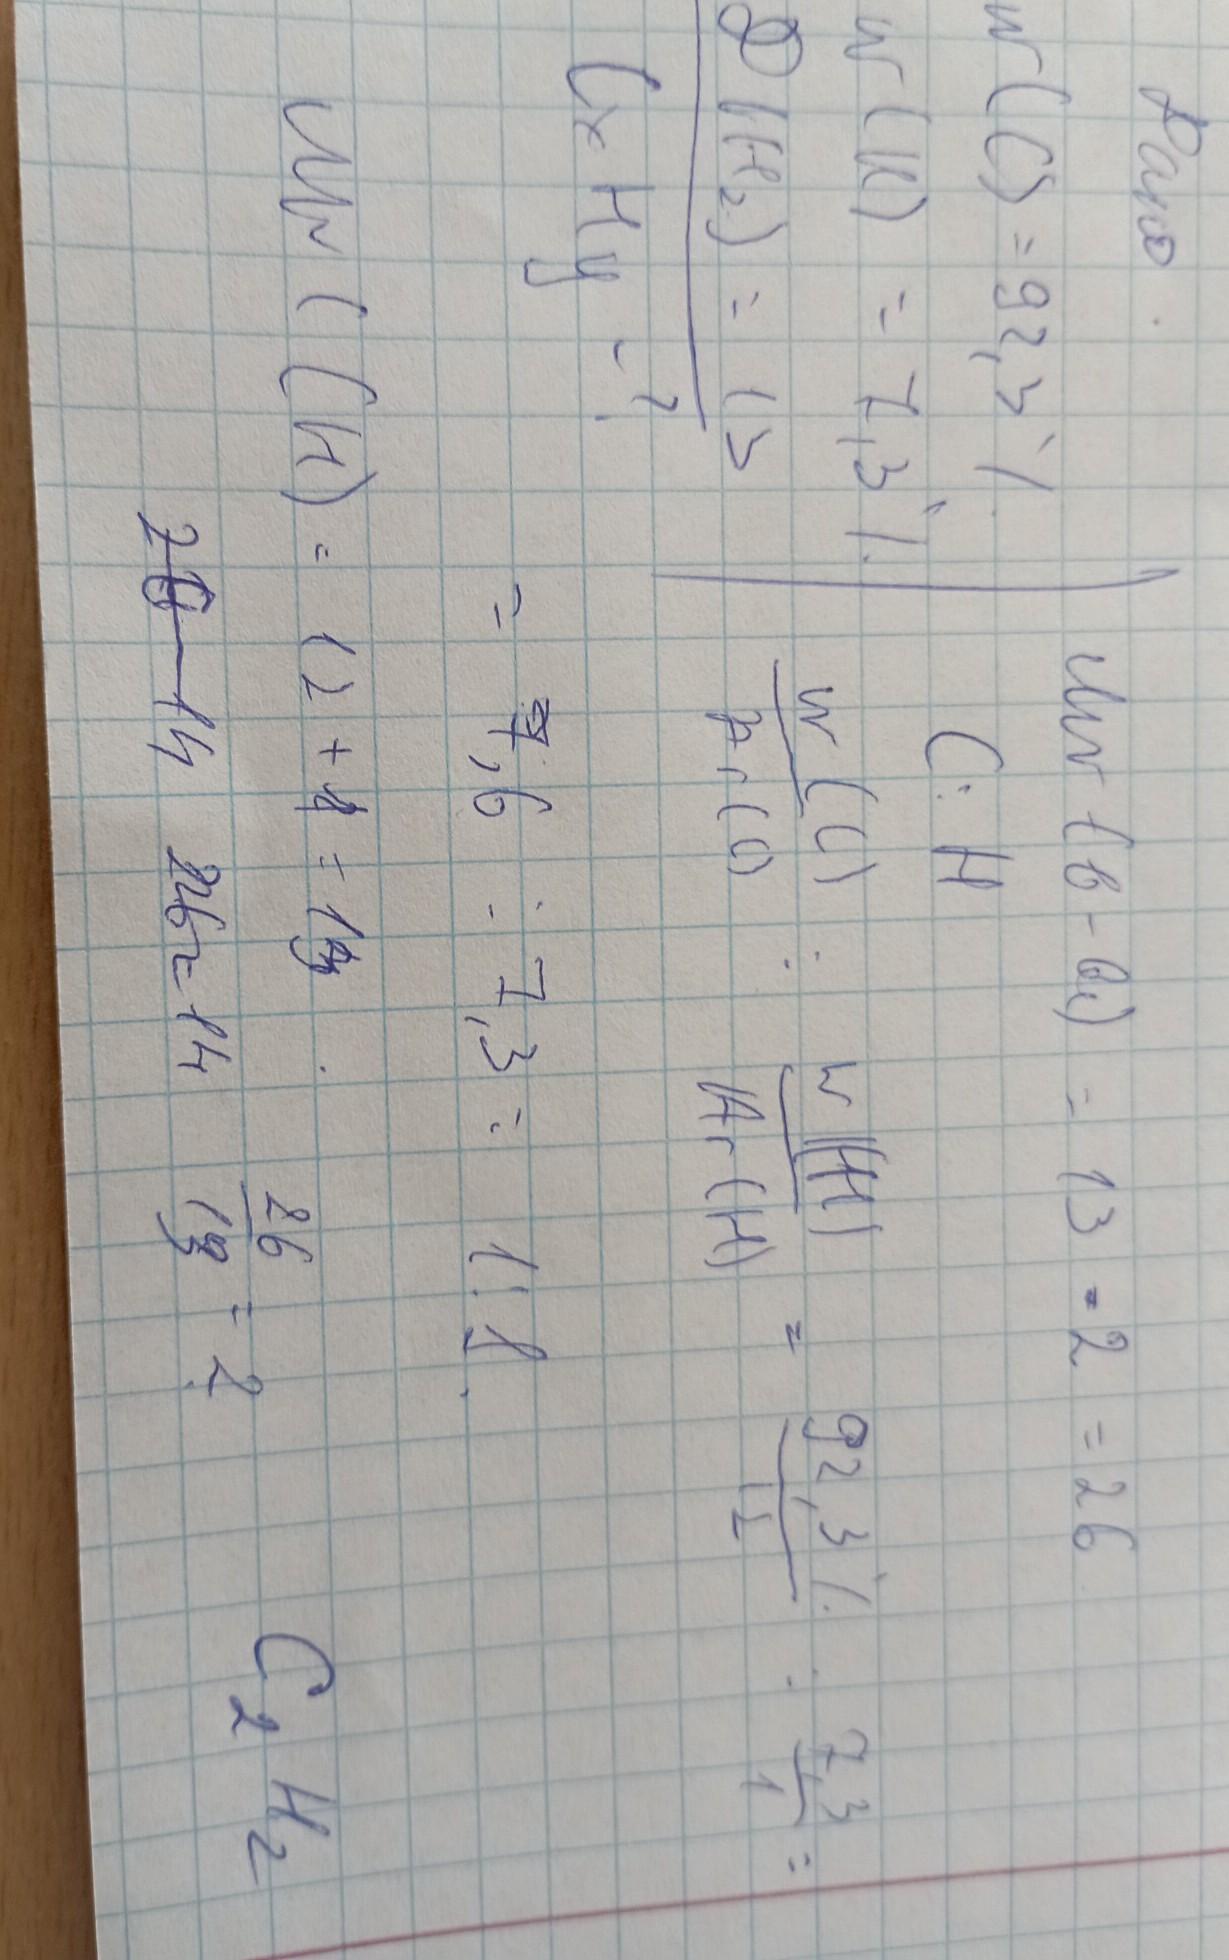 Дано.
w(C) = 92,3%
w(H) = 7,3%
D(H₂) = 13
CxHy - ?
Mr(в-ва) = 13 · 2 = 26
C : H
w(C)/Ar(C) : w(H)/Ar(H) = 92,3%/12 : 7,3/1 =
= 7,6 : 7,3 = 1:1.
Mr(CH) = 12 + 1 = 13.
26/13 = 2
26 = 14
C₂H₂